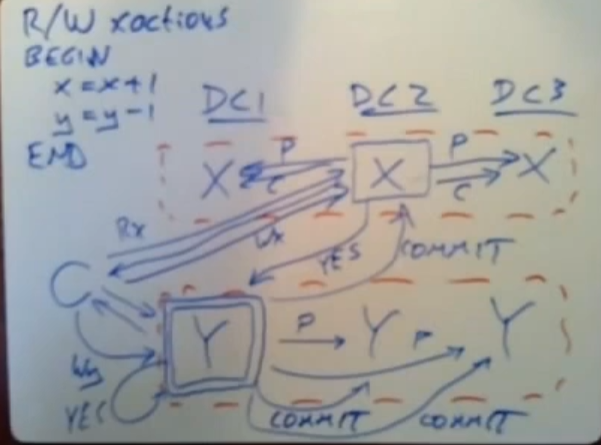 R/W xactions
BEGIN
x = x + 1
y = y - 1
END
DC1 DC2 DC3
X P C X P C X
Rx
Wx
YES
COMMIT
C
Y P Y P Y
Wy
YES
COMMIT COMMIT